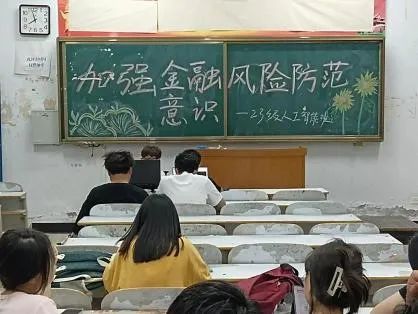 加强金融风险防范
意识
—23级人工智能班